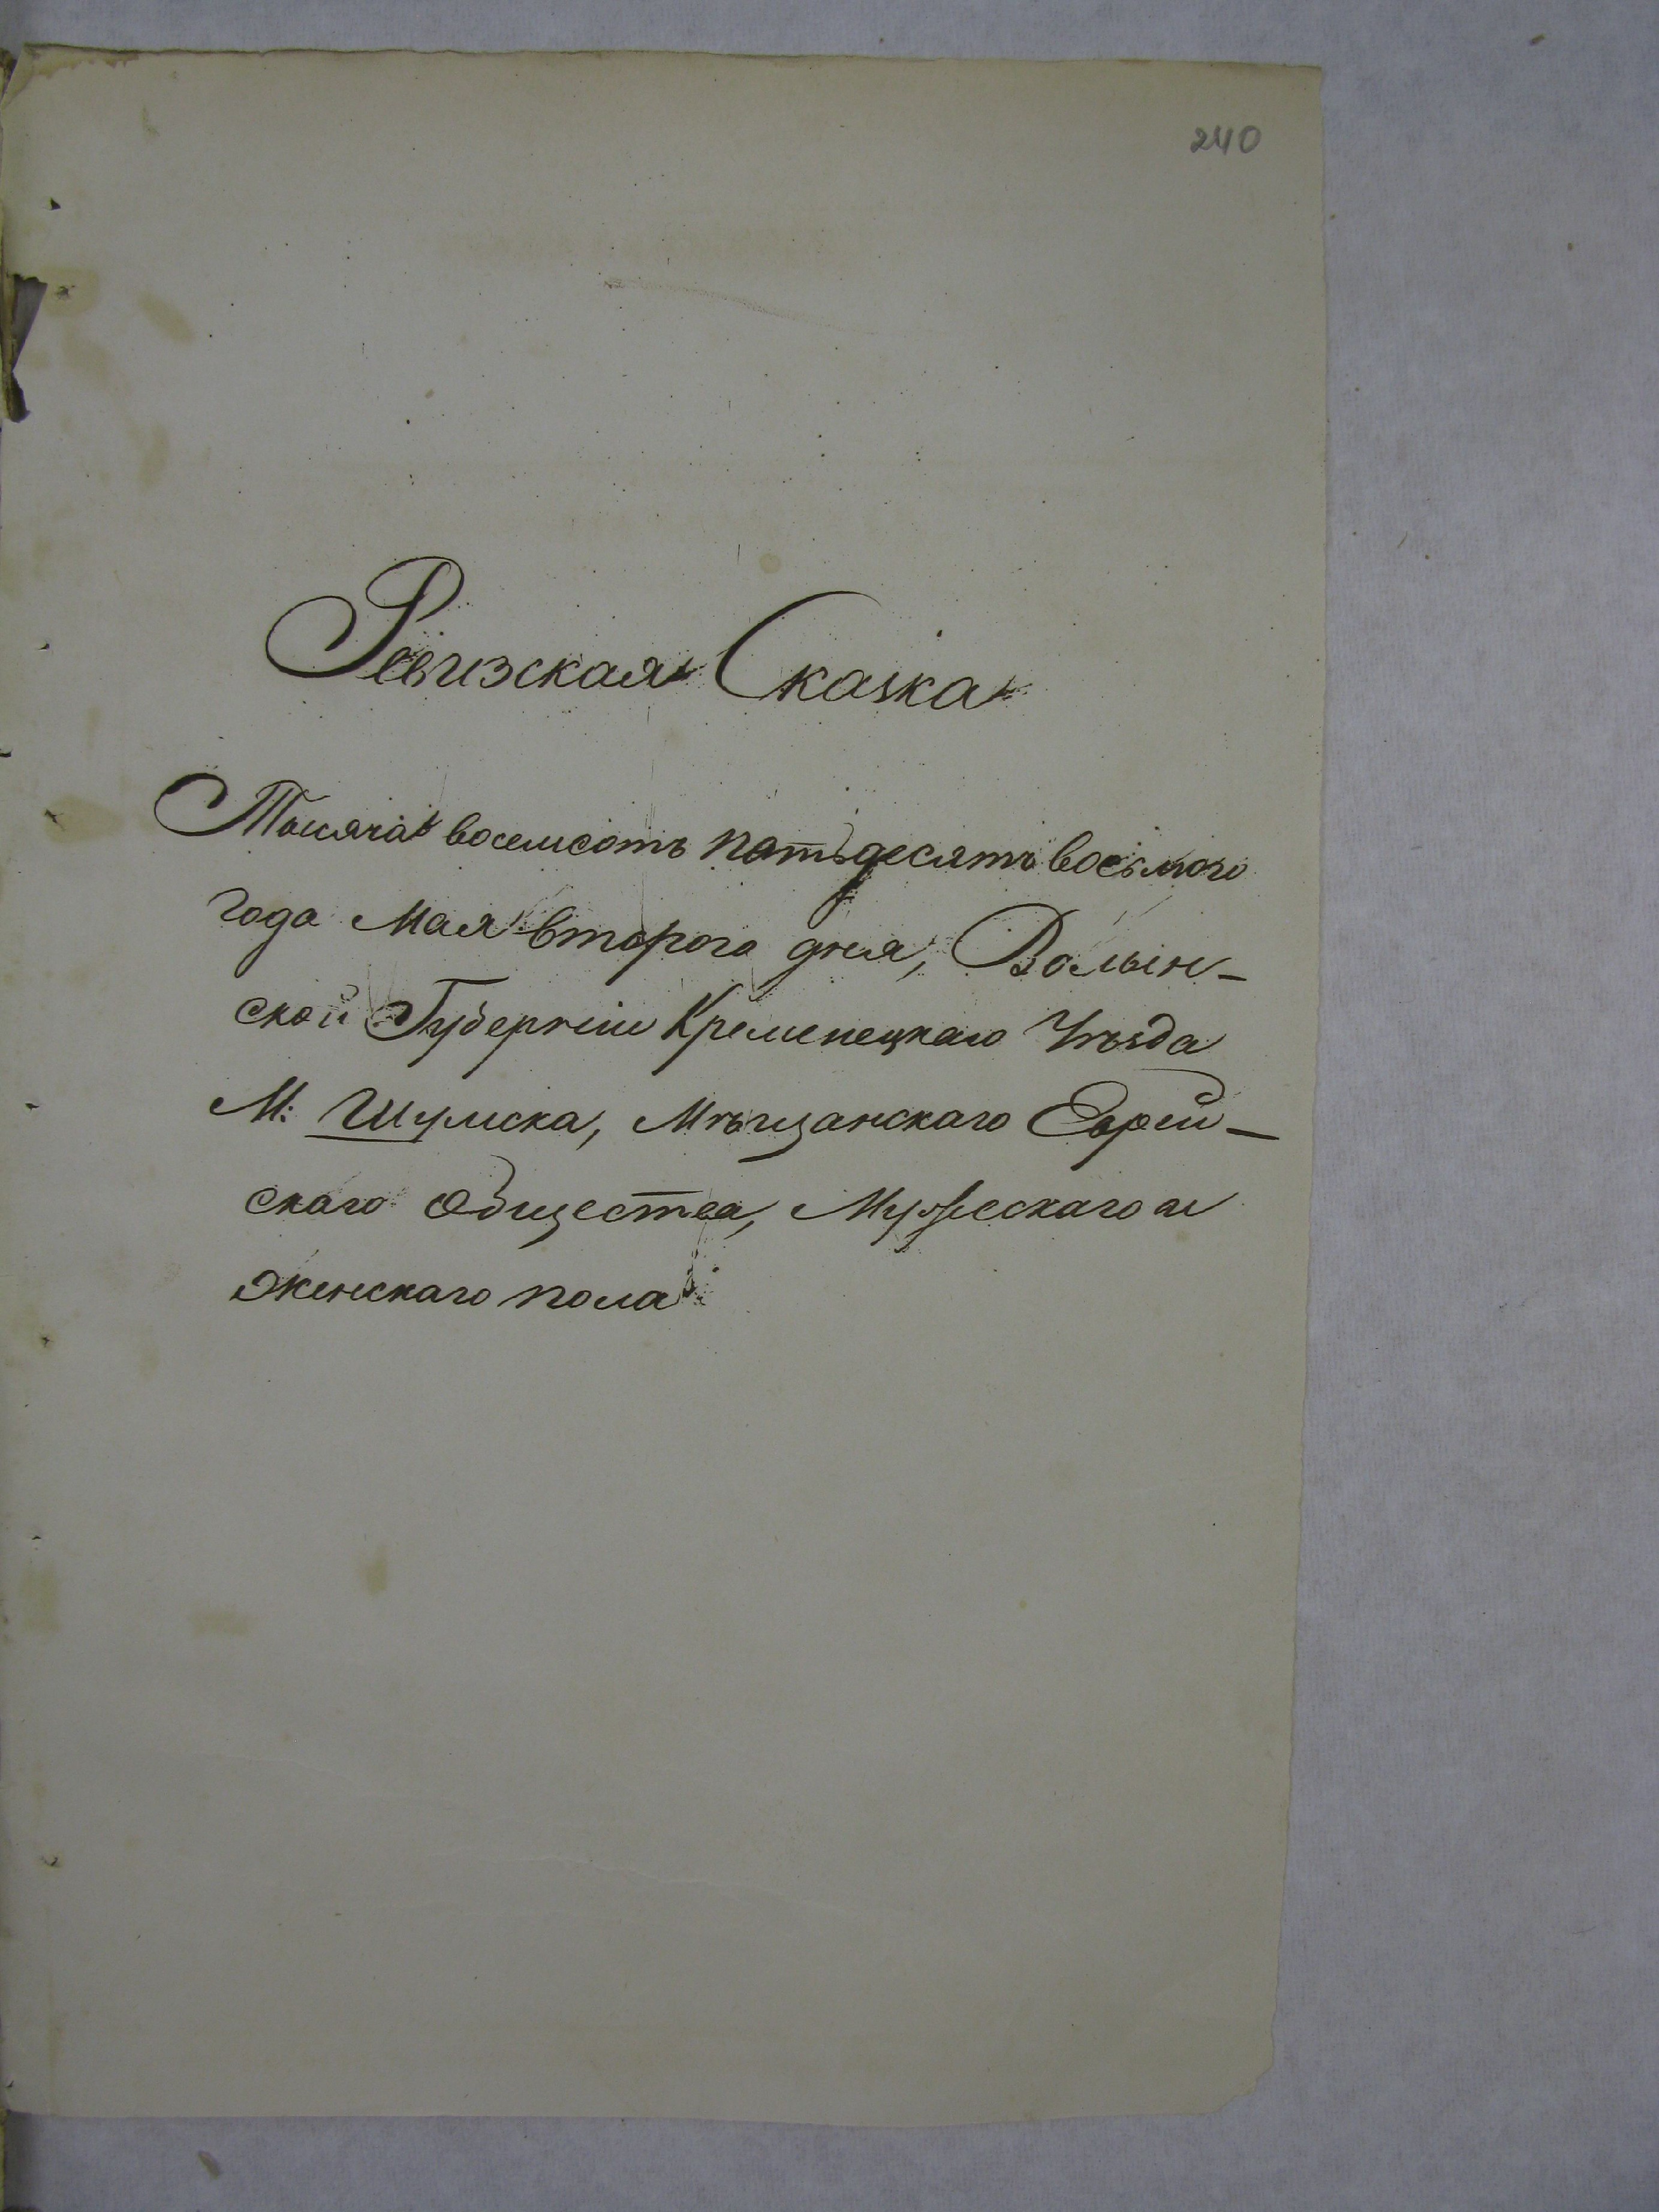 240
Ревизская Сказка
Тысяча восемсотъ пятьдесятъ восьмого
года Мая второго дня, Волын-
ской Губерніи Кременецкаго Уѣзда
М: Шумска, Мѣщанскаго Еврей-
скаго Общества, Мужескаго и
женскаго пола